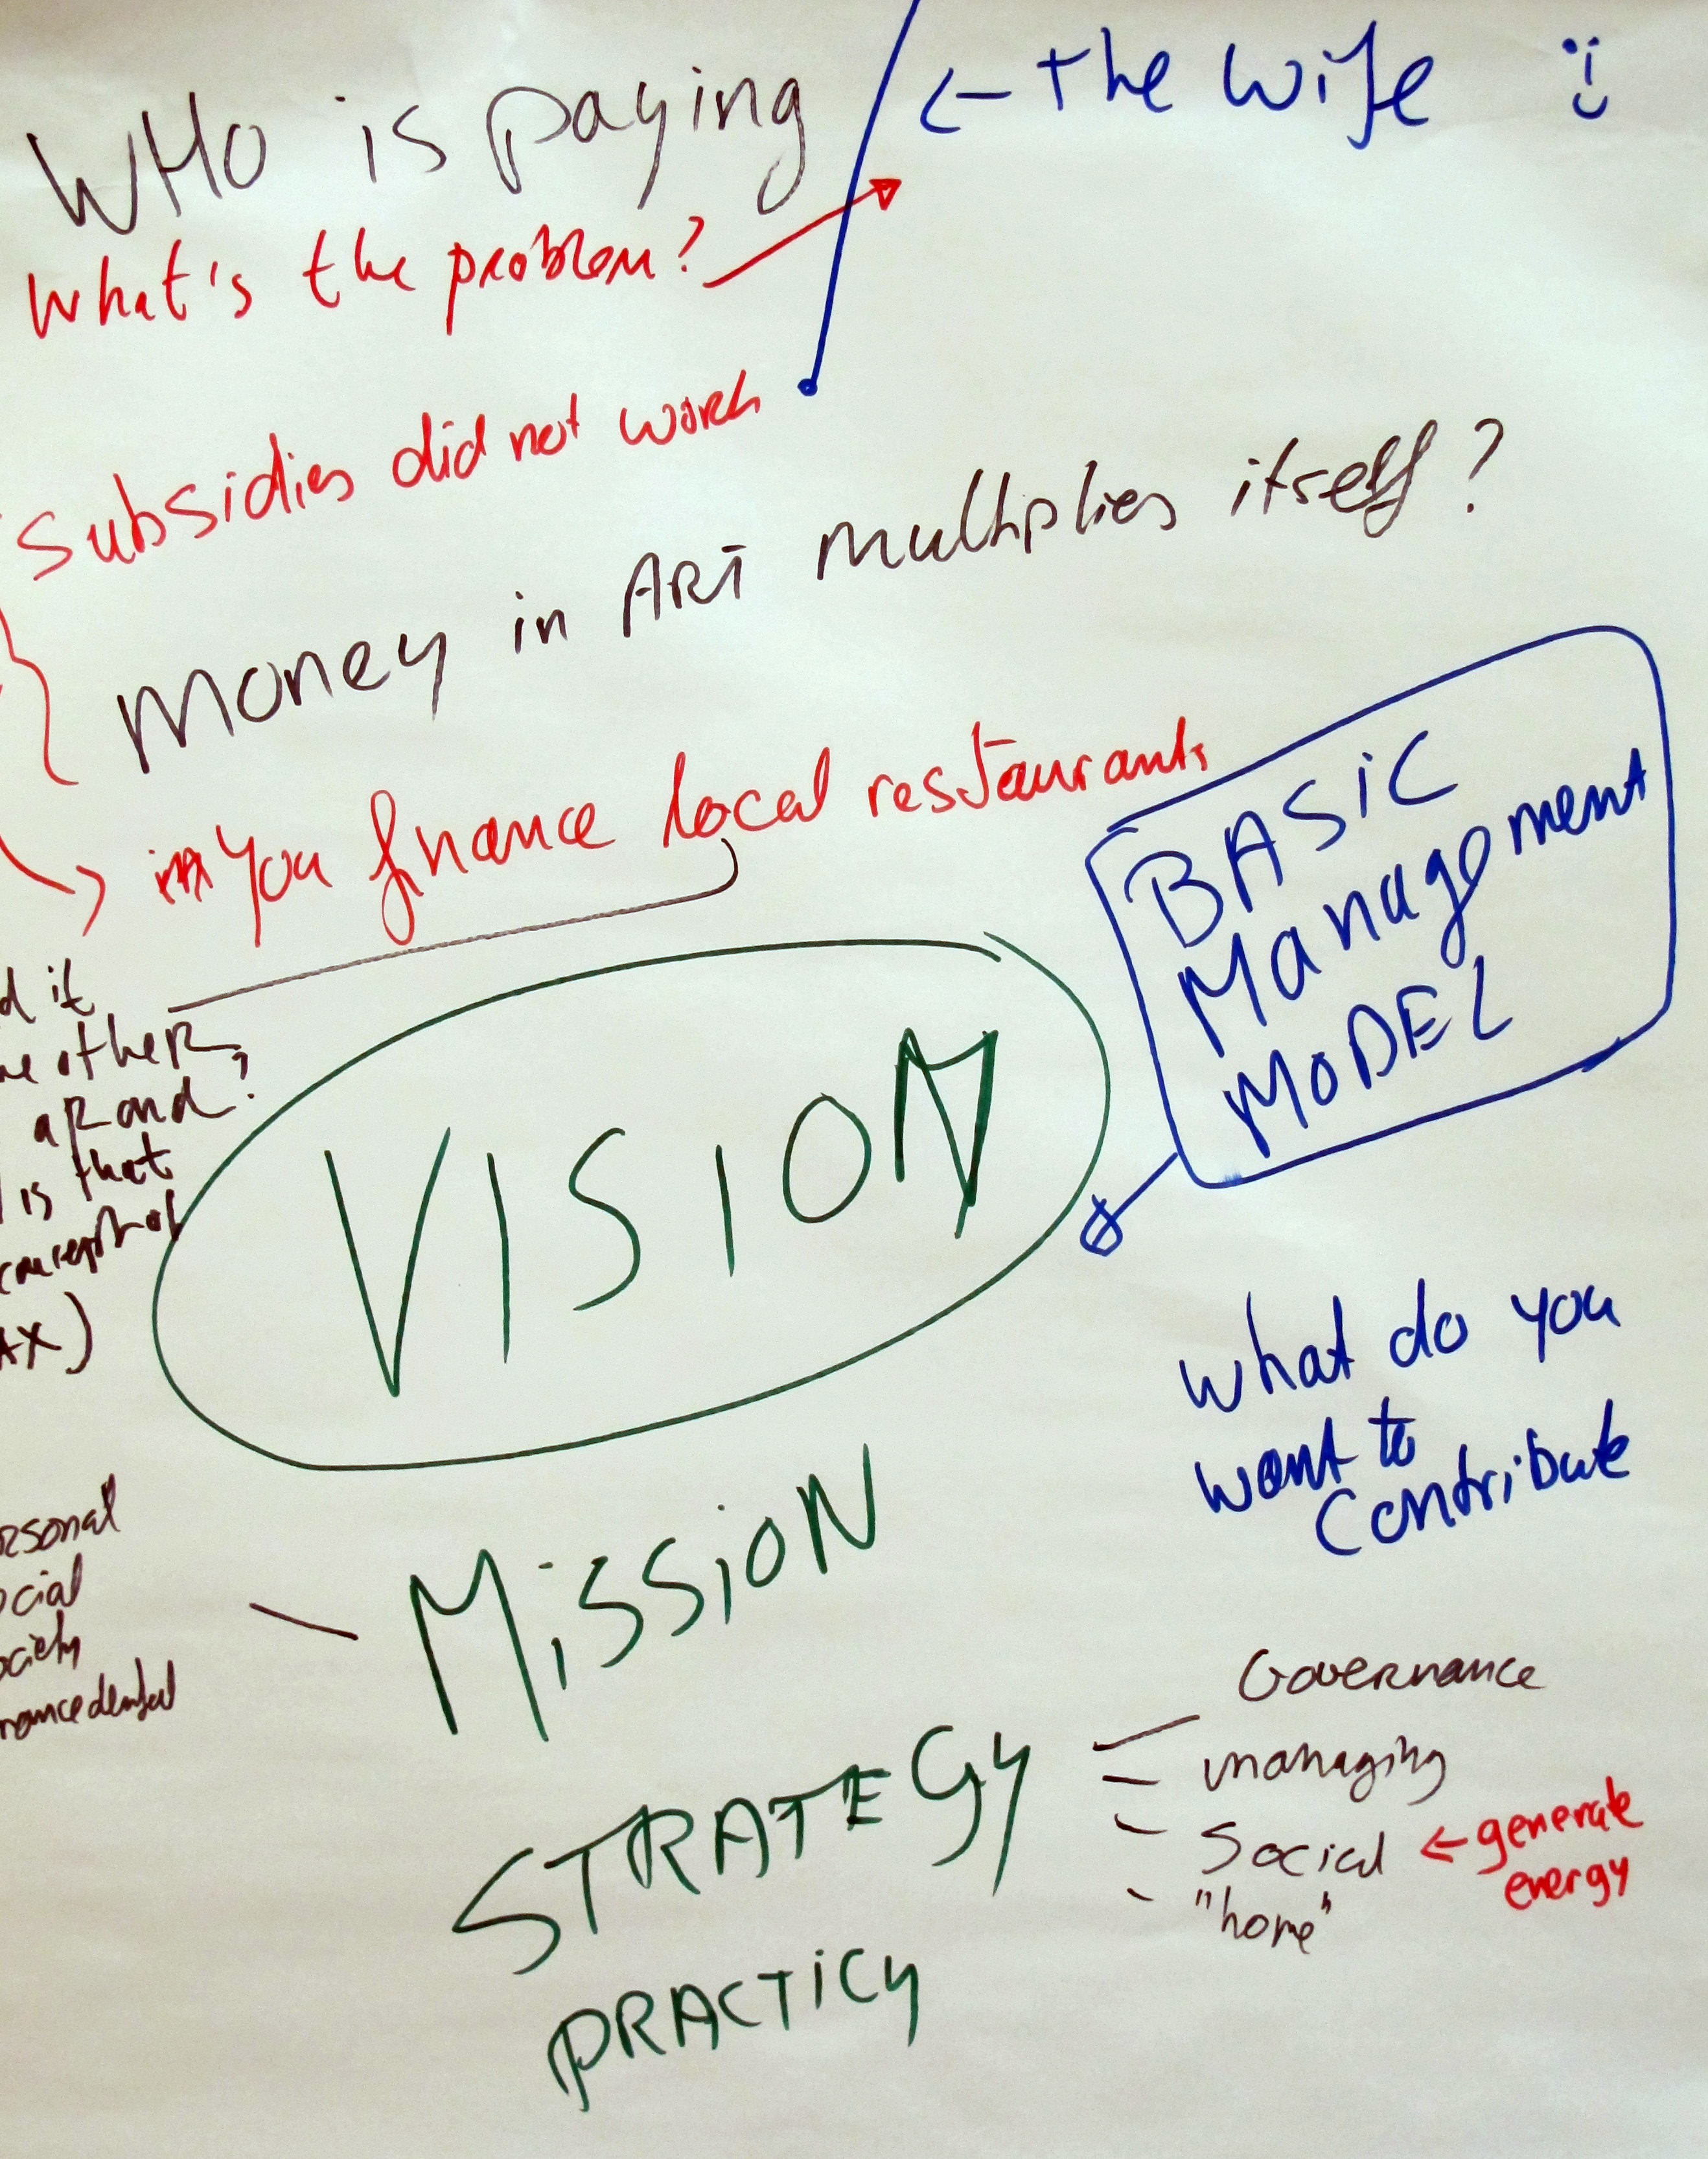 WHO is paying
← the wife
What's the problem?
subsidies did not work
money in ART multiplies itself?
→ you finance local restaurants
BASiC
Management
MODEL
d it
other
arand?
is that
concept of
AX)
VISION
what do you
want to
contribute
MissioN
rsonal
ocial
ociety
Governance
STRATEGY
managing
Social ← generate
energy
"home"
PRACTiCy